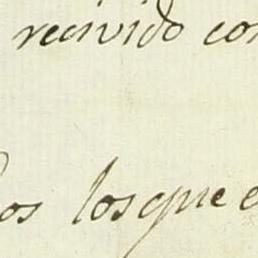 recivido con
os losque e